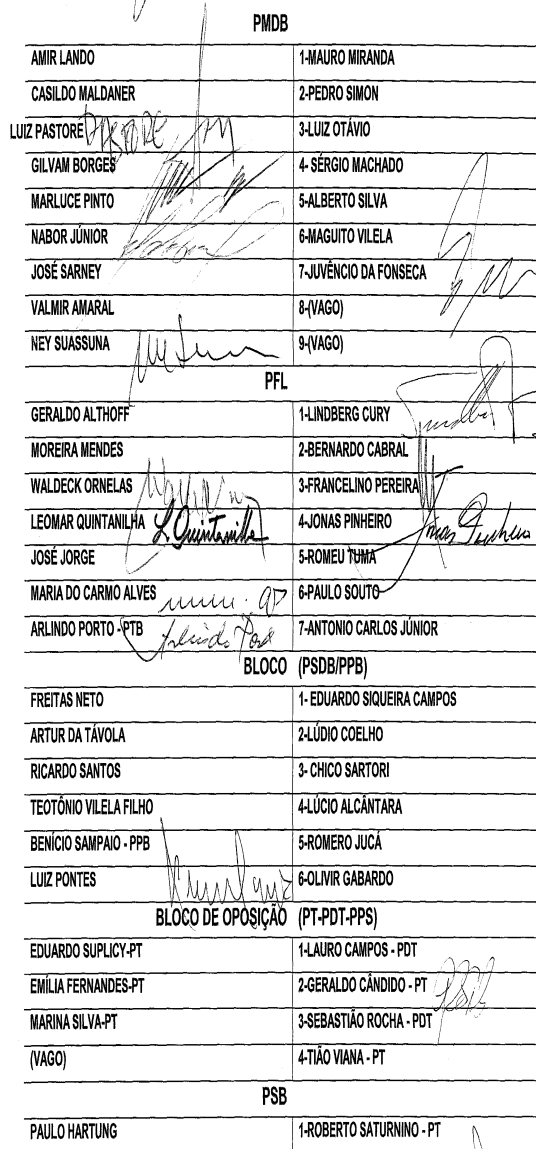 PMDB
AMIR LANDO 1-MAURO MIRANDA
CASILDO MALDANER 2-PEDRO SIMON
LUIZ PASTORE PASTORE 3-LUIZ OTÁVIO
GILVAM BORGES 4- SÉRGIO MACHADO
MARLUCE PINTO 5-ALBERTO SILVA
NABOR JÚNIOR 6-MAGUITO VILELA
JOSÉ SARNEY 7-JUVÊNCIO DA FONSECA
VALMIR AMARAL 8-(VAGO)
NEY SUASSUNA 9-(VAGO)
PFL
GERALDO ALTHOFF 1-LINDBERG CURY
MOREIRA MENDES 2-BERNARDO CABRAL
WALDECK ORNELAS 3-FRANCELINO PEREIRA
LEOMAR QUINTANILHA L Quintanilha 4-JONAS PINHEIRO Jonas Pinheiro
JOSÉ JORGE 5-ROMEU TUMA
MARIA DO CARMO ALVES 6-PAULO SOUTO
ARLINDO PORTO - PTB Arlindo Porto 7-ANTONIO CARLOS JÚNIOR
BLOCO (PSDB/PPB)
FREITAS NETO 1- EDUARDO SIQUEIRA CAMPOS
ARTUR DA TÁVOLA 2-LÚDIO COELHO
RICARDO SANTOS 3- CHICO SARTORI
TEOTÔNIO VILELA FILHO 4-LÚCIO ALCÂNTARA
BENÍCIO SAMPAIO - PPB 5-ROMERO JUCÁ
LUIZ PONTES 6-OLIVIR GABARDO
BLOCO DE OPOSIÇÃO (PT-PDT-PPS)
EDUARDO SUPLICY-PT 1-LAURO CAMPOS - PDT
EMÍLIA FERNANDES-PT 2-GERALDO CÂNDIDO - PT
MARINA SILVA-PT 3-SEBASTIÃO ROCHA - PDT
(VAGO) 4-TIÃO VIANA - PT
PSB
PAULO HARTUNG 1-ROBERTO SATURNINO - PT